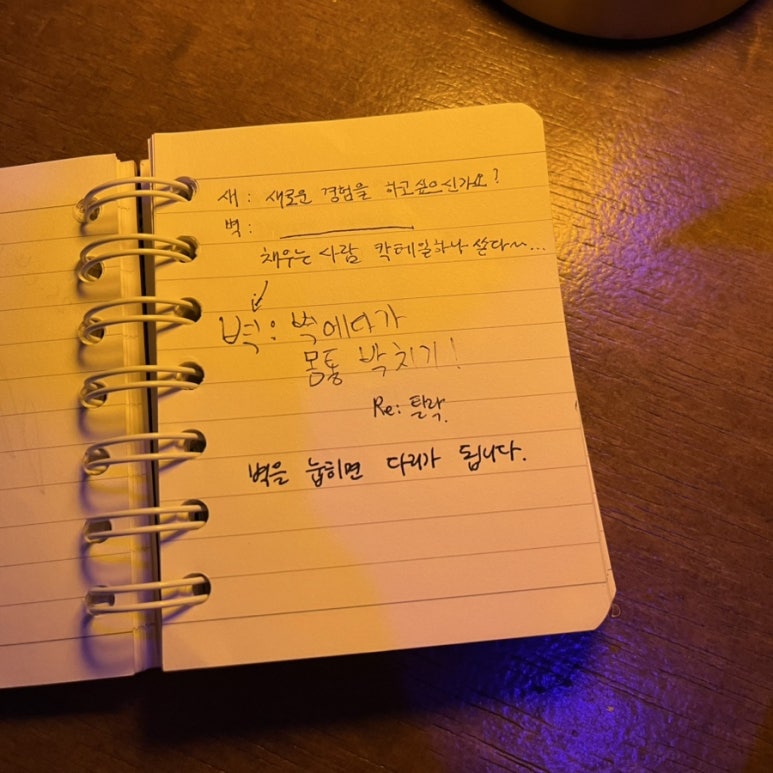 새 : 새로운 경험을 하고싶으신가요?
벽 :
채우는 사람 칵테일하나 쏜다~...
벽 : 벽에다가
몸통 박치기!
Re: 탈락.
벽을 눕히면 다리가 됩니다.